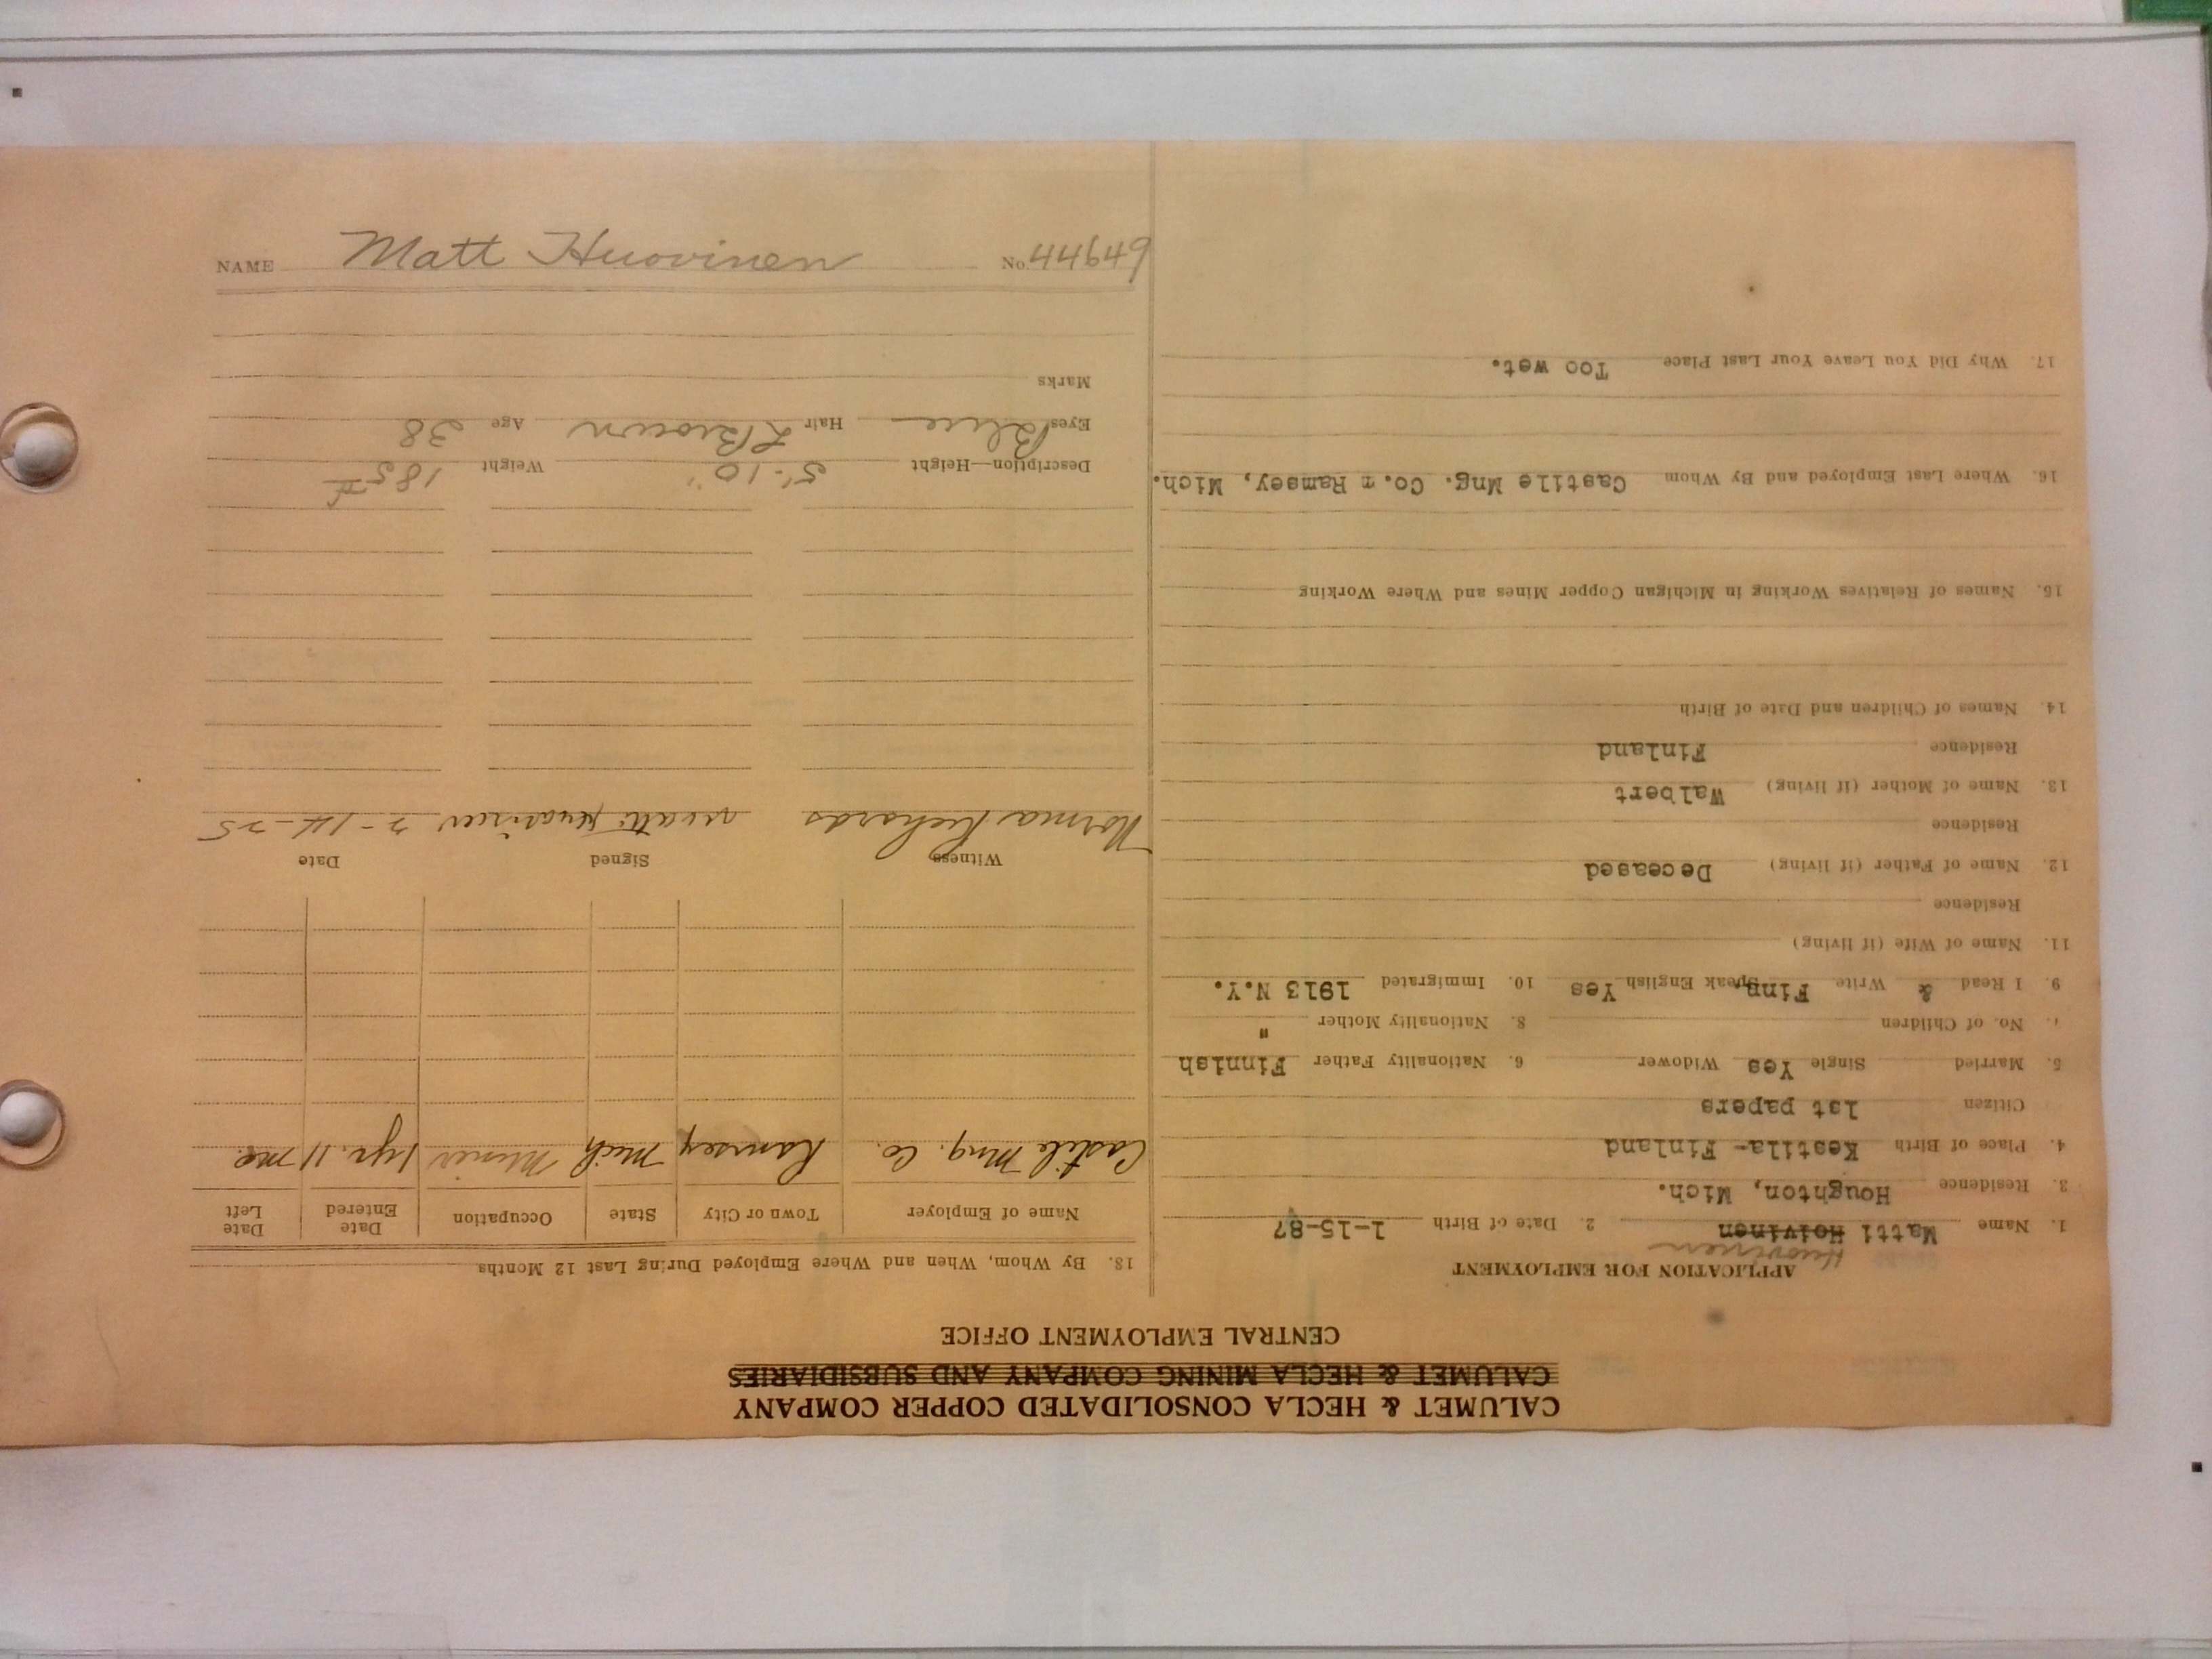 CALUMET & HECLA CONSOLIDATED COPPER COMPANY
CALUMET & HECLA MINING COMPANY AND SUBSIDIARIES
CENTRAL EMPLOYMENT OFFICE
APPLICATION FOR EMPLOYMENT
Huovinen
1. Name Matti Hoivinen 2. Date of Birth 1-15-87
3. Residence Houghton, Mich.
4. Place of Birth Kestila- Finland
Citizen 1st papers
5. Married Single Yes Widower 6. Nationality Father Finnish
7. No. of Children 8. Nationality Mother "
9. I Read & Write Finn. Speak English Yes 10. Immigrated 1913 N.Y.
11. Name of Wife (if living)
Residence
12. Name of Father (if living) Deceased
Residence
13. Name of Mother (if living) Walbert
Residence Finland
14. Names of Children and Date of Birth
15. Names of Relatives Working in Michigan Copper Mines and Where Working
16. Where Last Employed and By Whom Castile Mng. Co. - Ramsey, Mich.
17. Why Did You Leave Your Last Place Too wet.
18. By Whom, When and Where Employed During Last 12 Months
Name of Employer Town or City State Occupation Date Entered Date Left
Castile Mng. Co. Ramsey Mich Miner 1 yr. 11 mo.
Witness Signed Date
Norma Richards Matti Huovinen 2-14-25
Description—Height 5'-10" Weight 185 #
Eyes Blue Hair L Brown Age 38
Marks
NAME Matt Huovinen No. 44649